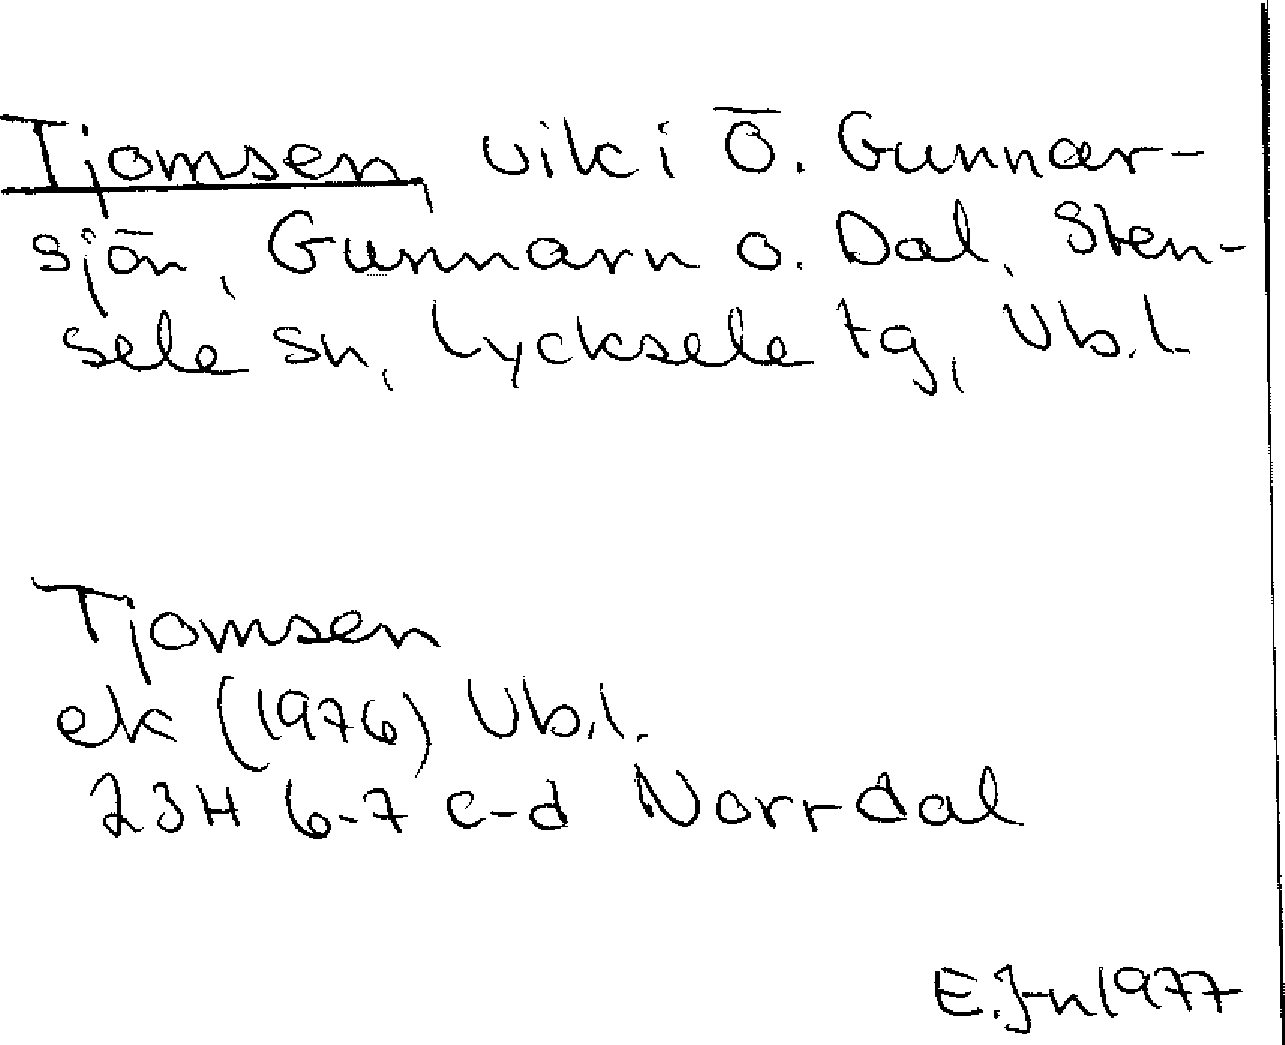 Tjomsen, vik i Ö. Gunnar-
sjön, Gunnarn o. Dal, Sten-
sele sn, Lycksele tg, Vb.l.
Tjomsen
ek (1976) Vb.l.
23H 6-7 c-d Norrdal
E.J-n 1977